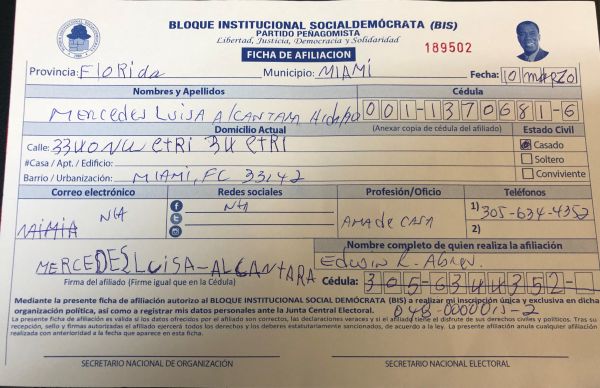 BLOQUE INSTITUCIONAL SOCIALDEMÓCRATA (BIS)
PARTIDO PEÑAGOMISTA
Libertad, Justicia, Democracia y Solidaridad
FICHA DE AFILIACION
189502
Provincia: FloRida Municipio: MiAMÍ Fecha: 10 mARZO
Nombres y Apellidos Cédula
MERCEDES LUISA AlCANTARA 001-1370681-6
Domicilio Actual (Anexar copia de cédula del afiliado) Estado Civil
Calle: Casado
#Casa / Apt. / Edificio: Soltero
Barrio / Urbanización: MIAMI, FC 33142 Conviviente
Correo electrónico Redes sociales Profesión/Oficio Teléfonos
N/A N/A AMA de CASA 1) 305-634-4352
2)
Nombre completo de quien realiza la afiliación
MERCEDES LUISA-ALCANTARA Edwin R. Abreu
Firma del afiliado (Firme igual que en la Cédula) Cédula: 305-6344352-
Mediante la presente ficha de afiliación autorizo al BLOQUE INSTITUCIONAL SOCIAL DEMÓCRATA (BIS) a realizar mi inscripción única y exclusiva en dicha
organización política, así como a registrar mis datos personales ante la Junta Central Electoral. 048-0000015-2
La presente ficha de afiliación es válida si los datos ofrecidos por el afiliado son correctos, las declaraciones veraces y si el afiliado tiene el disfrute de sus derechos civiles y políticos. Tras su
recepción, sello y firmas autorizadas el afiliado ejercerá todos los derechos y los deberes estatutariamente sancionados, de acuerdo a la ley. La presente afiliación anula cualquier afiliación
realizada con anterioridad a la fecha que aparece en esta ficha.
SECRETARIO NACIONAL DE ORGANIZACIÓN SECRETARIO NACIONAL ELECTORAL